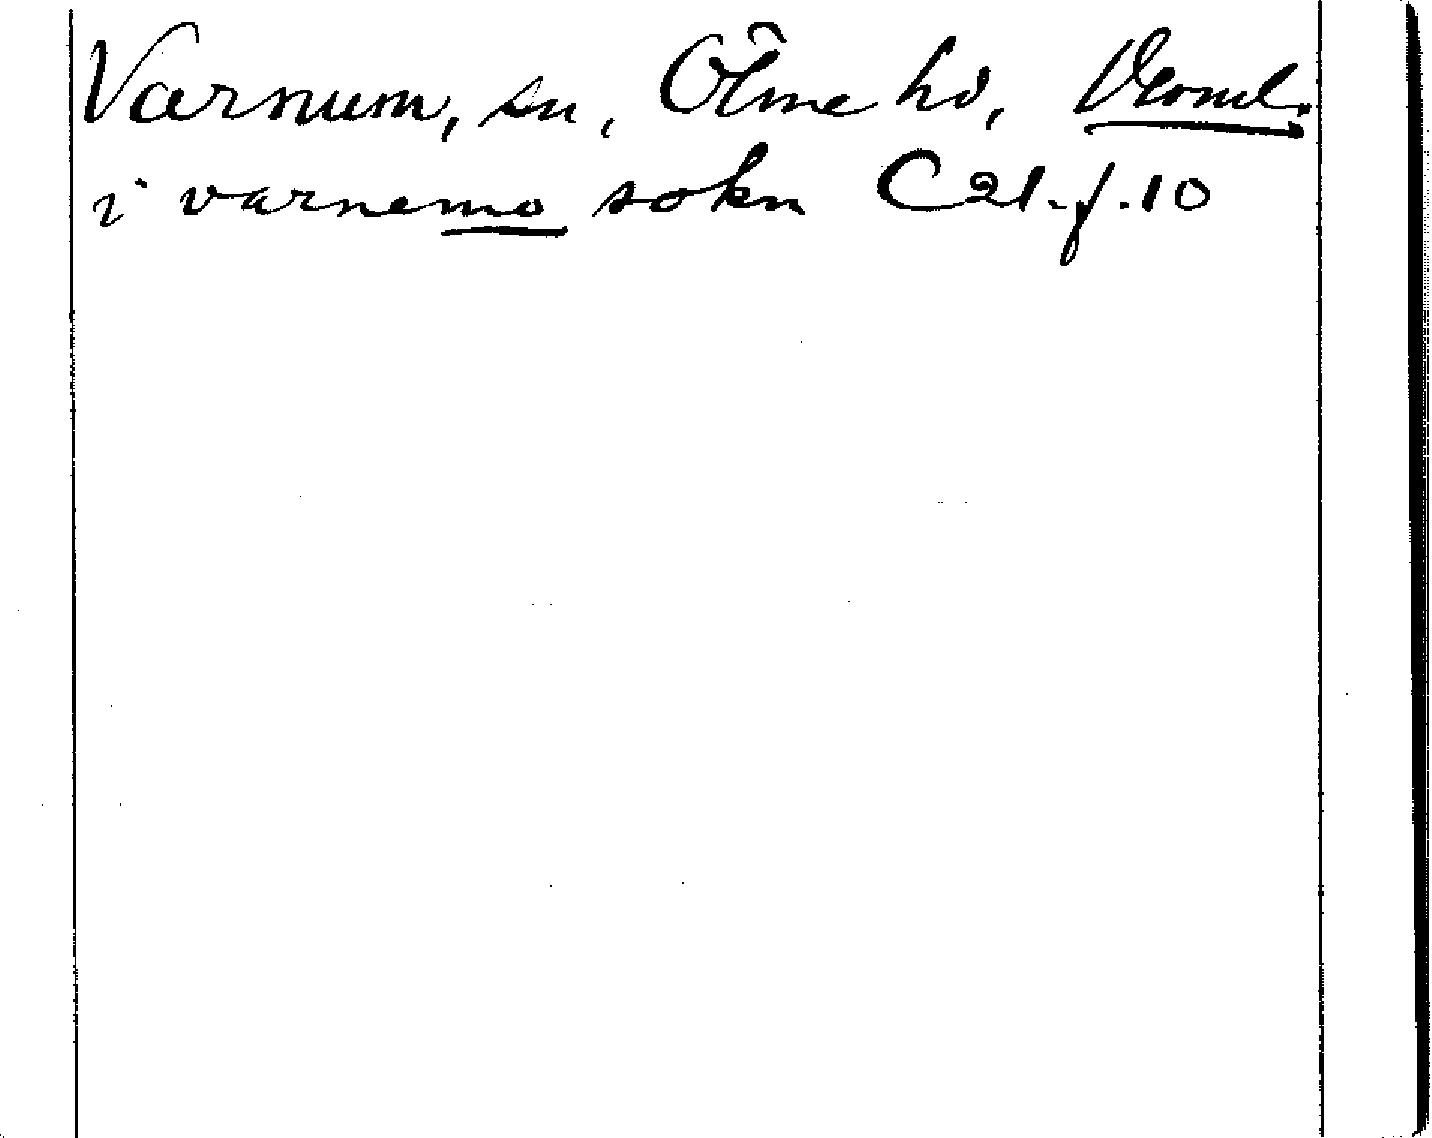 Varnum, sn, Ölme hd, Vrml.
i varnemo sokn C 21. f. 10